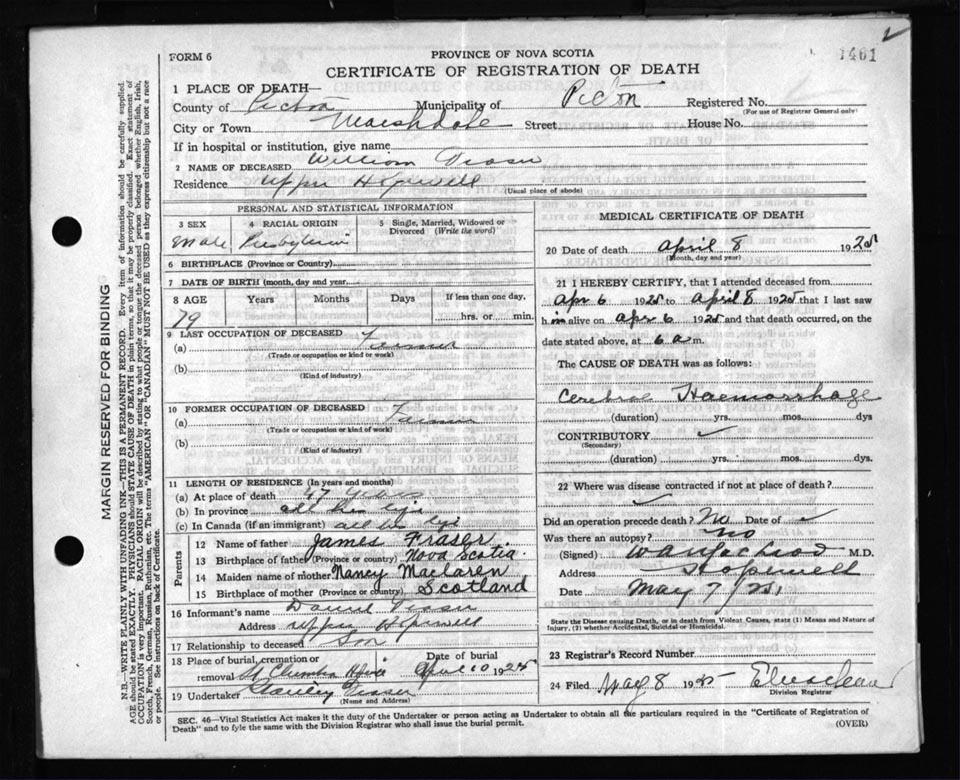 1461
FORM 6
PROVINCE OF NOVA SCOTIA
CERTIFICATE OF REGISTRATION OF DEATH
1 PLACE OF DEATH—
County of Pictou Municipality of Pictou Registered No.
(For use of Registrar General only)
City or Town Marshdale Street House No.
If in hospital or institution, give name
2 NAME OF DECEASED William Fraser
Residence Upper Hopewell
(Usual place of abode)
PERSONAL AND STATISTICAL INFORMATION
3 SEX 4 RACIAL ORIGIN 5 Single, Married, Widowed or Divorced (Write the word)
Male Presbyterian
6 BIRTHPLACE (Province or Country)
7 DATE OF BIRTH (month, day and year)
8 AGE Years Months Days If less than one day,
79 hrs. or min.
9 LAST OCCUPATION OF DECEASED
(a) Farmer
(Trade or occupation or kind or work)
(b)
(Kind of industry)
10 FORMER OCCUPATION OF DECEASED
(a) Farmer
(Trade or occupation or kind or work)
(b)
(Kind of industry)
11 LENGTH OF RESIDENCE (In years and months)
(a) At place of death 47 years
(b) In province all his life
(c) In Canada (if an immigrant) all his life
Parents
12 Name of father James Fraser
13 Birthplace of father (Province or country) Nova Scotia.
14 Maiden name of mother Nancy Maclaren
15 Birthplace of mother (Province or country) Scotland
16 Informant's name Fraser
Address Upper Hopewell
17 Relationship to deceased Son
18 Place of burial, cremation or removal Date of burial
April 10 1925
19 Undertaker Fraser
(Name and Address)
MEDICAL CERTIFICATE OF DEATH
20 Date of death April 8 1925
(Month, day and year)
21 I HEREBY CERTIFY, that I attended deceased from
Apr 6 1925 to April 8 1925 that I last saw
him alive on Apr 6 1925 and that death occurred, on
date stated above, at 6 a m.
The CAUSE OF DEATH was as follows:
Cerebral Haemorrhage
(duration) yrs. mos. dys
CONTRIBUTORY
(Secondary)
(duration) yrs. mos. dys.
22 Where was disease contracted if not at place of death?
Did an operation precede death? No Date of
Was there an autopsy? No
(Signed) M.D.
Address Hopewell
Date May 7/25
State the Disease causing Death, or in death from Violent Causes, state (1) Means and Nature of
Injury, (2) whether Accidental, Suicidal or Homicidal.
23 Registrar's Record Number
24 Filed May 8 1925
Division Registrar
SEC. 46—Vital Statistics Act makes it the duty of the Undertaker or person acting as Undertaker to obtain all the particulars required in the "Certificate of Registration of
Death" and to fyle the same with the Division Registrar who shall issue the burial permit.
(OVER)
MARGIN RESERVED FOR BINDING
N.B.—WRITE PLAINLY WITH UNFADING INK—THIS IS A PERMANENT RECORD. Every item of information should be carefully supplied.
AGE should be stated EXACTLY. PHYSICIANS should STATE CAUSE OF DEATH in plain terms, so that it may be properly classified. Exact statement of
OCCUPATION is very important. RACIAL ORIGIN will be described by stating to what people or tongue the deceased person belonged whether English, Irish,
Scotch, French, German, Russian, Ruthenian, etc. The terms "AMERICAN" OR "CANADIAN" MUST NOT BE USED as they express citizenship but not a race
or people. See instructions on back of Certificate.